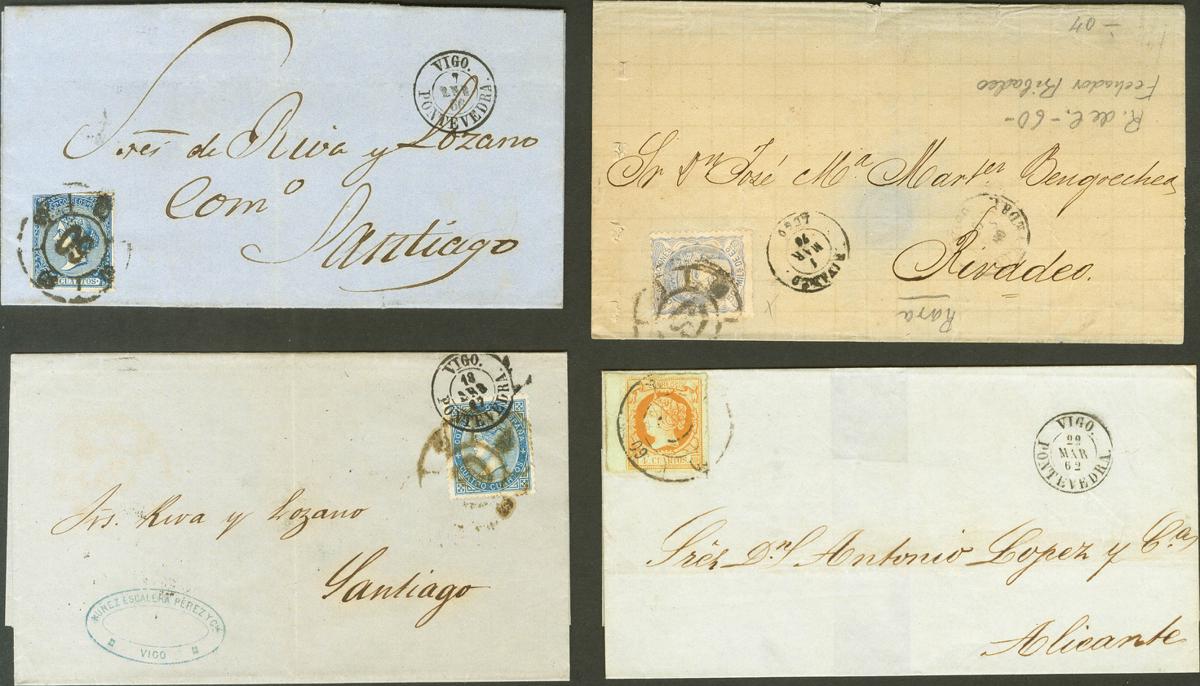 VIGO.
7
ENE
66
PONTEVEDRA.
Sres de Riva y Lozano
Como
Santiago
CUARTOS
- 04
Fechador Ribadeo
R. de C. - 60 -
Sr Dn José Ma Marter Bengoechea
1
MAR
70
LUGO
Rivadeo.
Rara
VIGO.
18
PONTEVEDRA
CUATRO CUARTOS
Srs. Riva y Lozano
Santiago
NUÑEZ ESCALERA PEREZ Y Ca
VIGO
CUARTOS
60
VIGO.
22
MAR
62
PONTEVEDRA.
Srés Dn S Antonio Lopez y Ca
Alicante